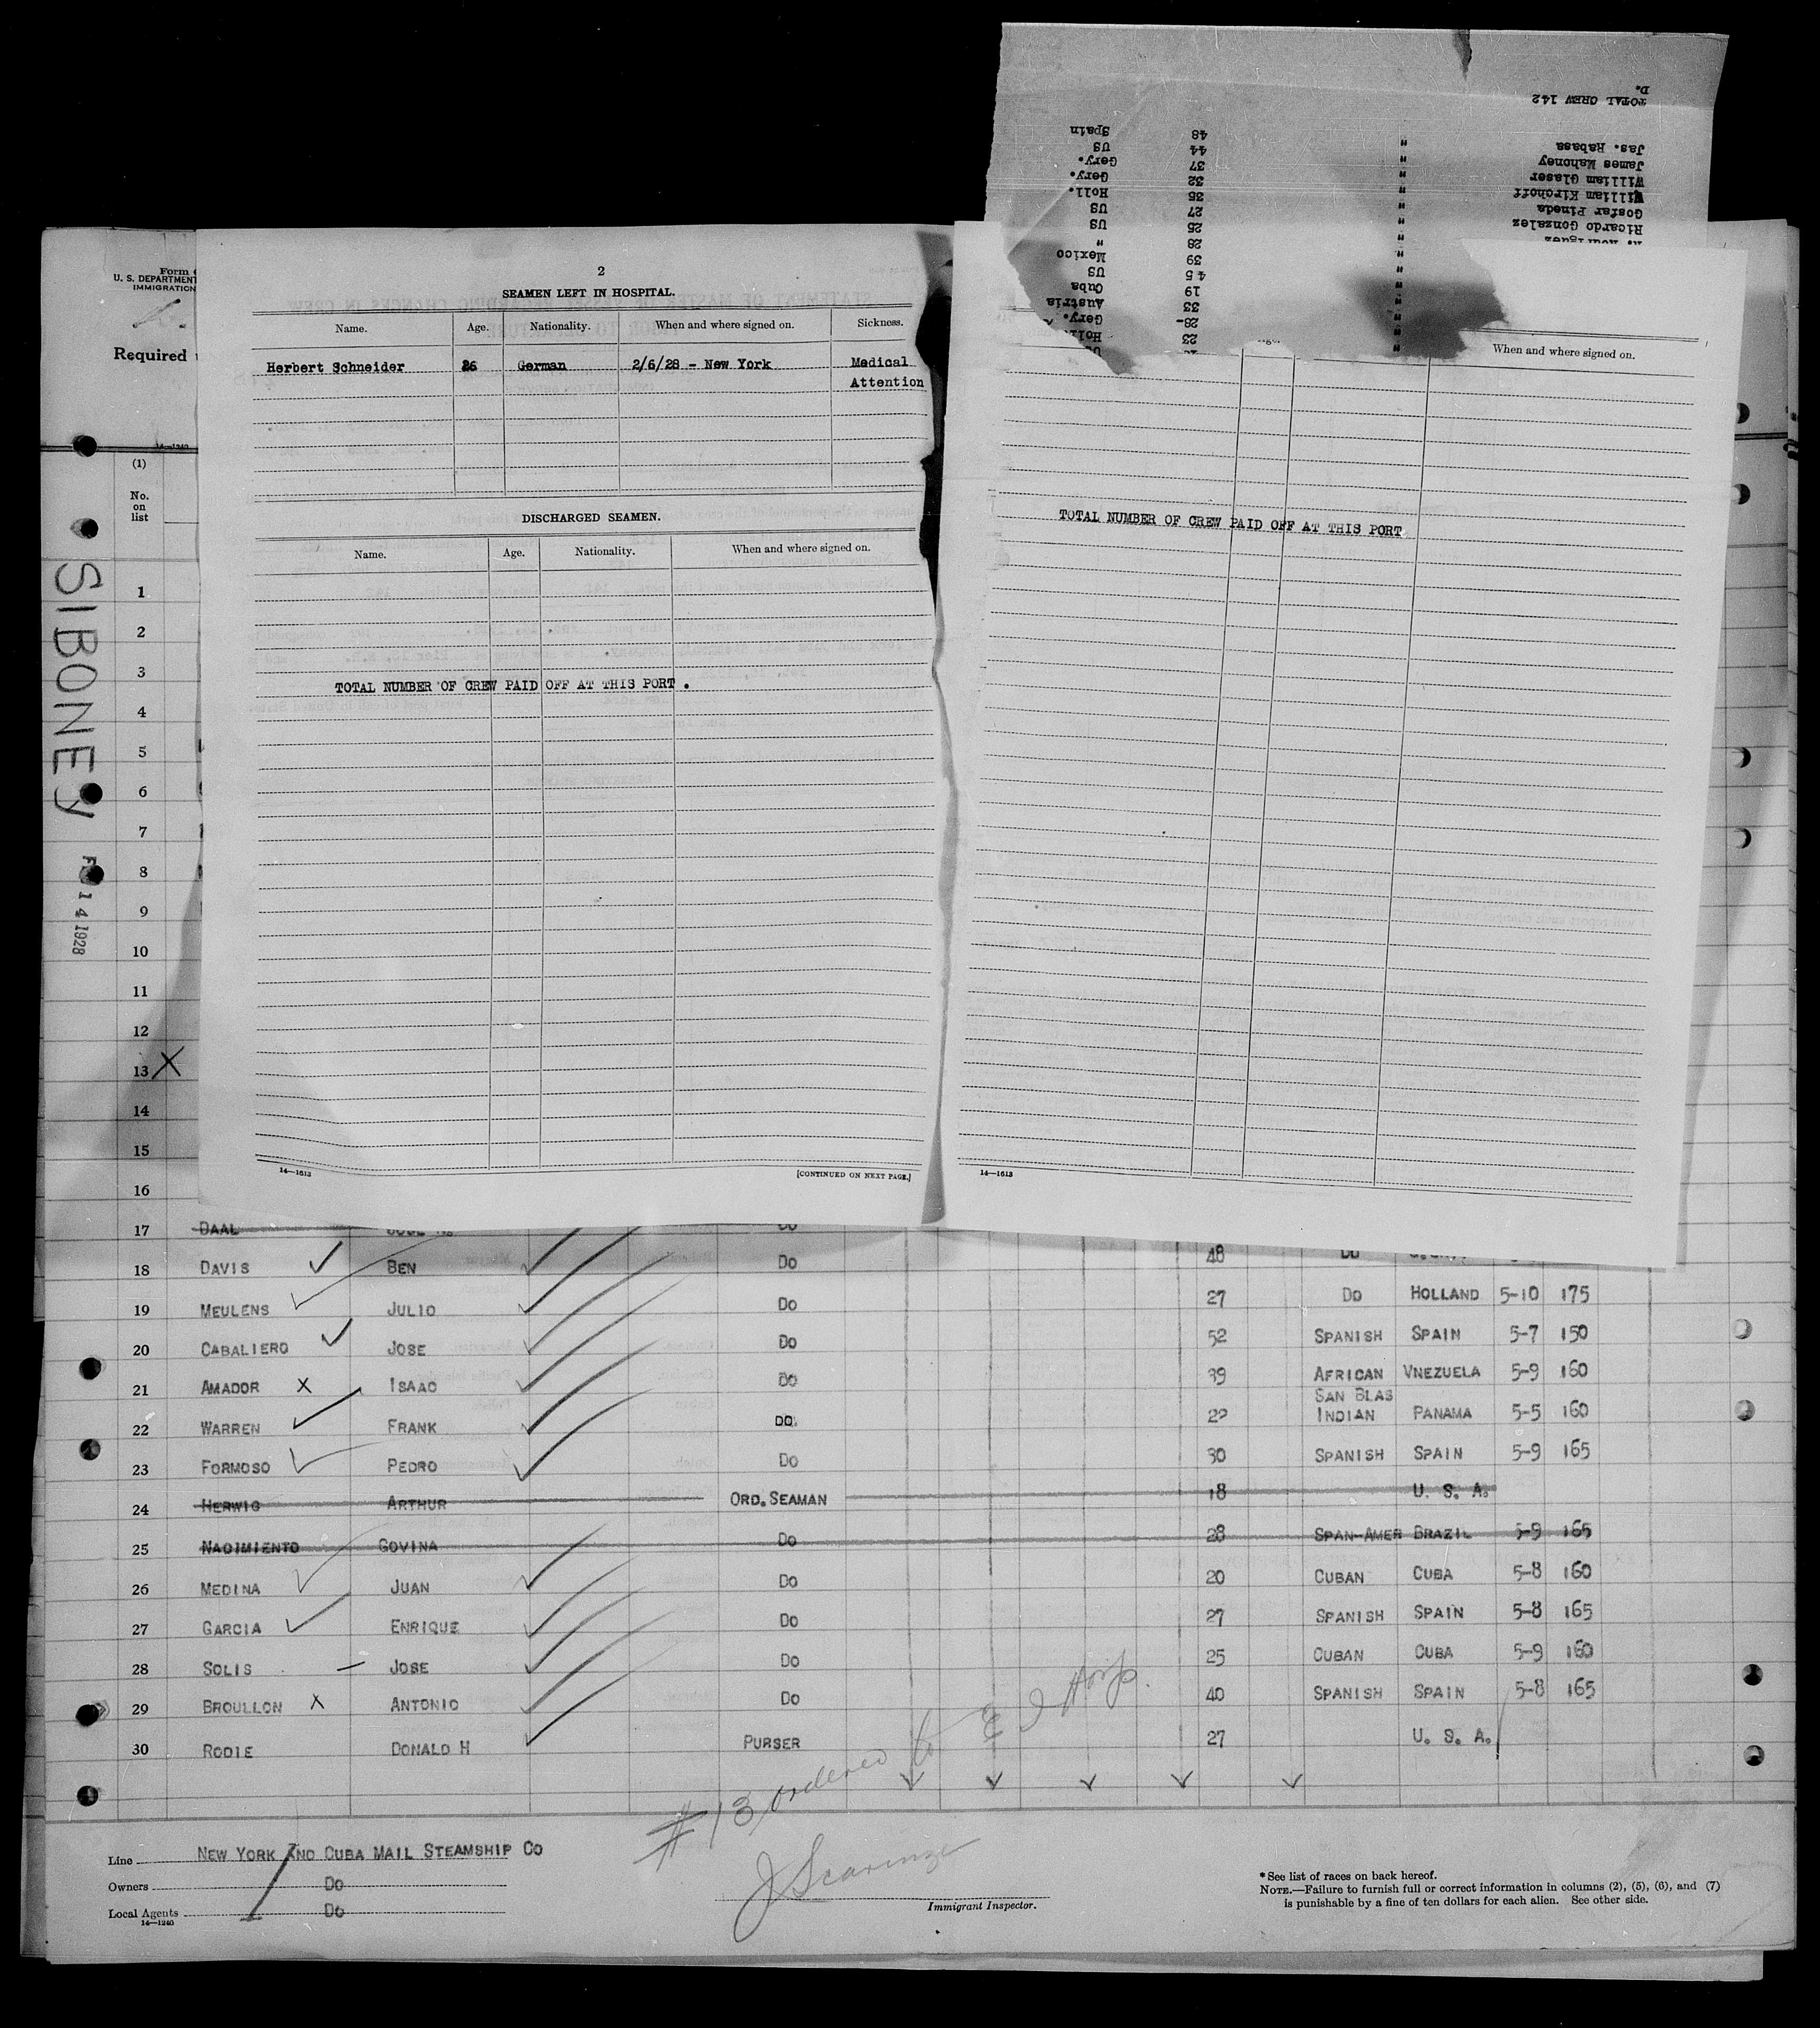 D.
TOTAL CREW 142
Jas. Rabasa " 48 Spain
James Mahoney " 44 US
William Glaser " 37 Gery.
William Kirchoff " 32 Gery.
Gosfar Pineda " 35 Holl.
Ricardo Gonzalez " 27 US
" 25 US
" 28 "
" 39 Mexico
" 45 US
" 19 Cuba
" 33 Austria
" 28- Gery.
" 23
Form
U. S. DEPARTMENT
IMMIGRATION
Required
14—1240
(1)
No.
on
list
SIBONEY
1 4 1928
2
SEAMEN LEFT IN HOSPITAL.
Name. Age. Nationality. When and where signed on. Sickness.
Herbert Schneider 26 German 2/6/28 - New York Medical
Attention
DISCHARGED SEAMEN.
Name. Age. Nationality. When and where signed on.
TOTAL NUMBER OF CREW PAID OFF AT THIS PORT .
14—1613 [CONTINUED ON NEXT PAGE.]
When and where signed on.
TOTAL NUMBER OF CREW PAID OFF AT THIS PORT
14—1613
1
2
3
4
5
6
7
8
9
10
11
12
13 X
14
15
16
17 DAAL
18 DAVIS BEN DO 48 DO
19 MEULENS JULIO DO 27 DO HOLLAND 5-10 175
20 CABALIERO JOSE DO 52 SPANISH SPAIN 5-7 150
21 AMADOR X ISAAC DO 39 AFRICAN VNEZUELA 5-9 160
22 WARREN FRANK DO. 22 SAN BLAS INDIAN PANAMA 5-5 160
23 FORMOSO PEDRO DO 30 SPANISH SPAIN 5-9 165
24 HERWIG ARTHUR ORD. SEAMAN 18 U. S. A.
25 NACIMIENTO GOVINA DO 28 SPAN-AMER BRAZIL 5-9 165
26 MEDINA JUAN DO 20 CUBAN CUBA 5-8 160
27 GARCIA ENRIQUE DO 27 SPANISH SPAIN 5-8 165
28 SOLIS JOSE DO 25 CUBAN CUBA 5-9 160
29 BROULLON X ANTONIO DO 40 SPANISH SPAIN 5-8 165
30 RODIE DONALD H PURSER 27 U. S. A.
#13 ordered to E I Hosp.
Line NEW YORK AND CUBA MAIL STEAMSHIP CO
Owners DO
Local Agents DO
14—1240
Immigrant Inspector.
* See list of races on back hereof.
NOTE.—Failure to furnish full or correct information in columns (2), (5), (6), and (7)
is punishable by a fine of ten dollars for each alien. See other side.